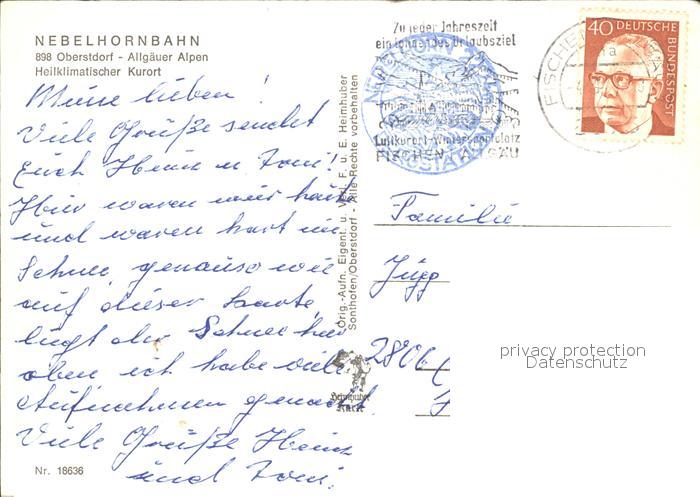 NEBELHORNBAHN
898 Oberstdorf - Allgäuer Alpen
Heilklimatischer Kurort
Meine lieben!
Viele Grüße sendet
Euch Heinz u. Toni!
Hier waren wir heute
und waren hart im
Schnee, genauso wie
auf dieser Karte,
liegt der Schnee hier
oben ich habe viele
Aufnahmen gemacht.
Viele Grüße Heinz
und Toni.
Nr. 18636
Orig.-Aufn. Eigent. u. Verl. F. u. E. Heimhuber
Sonthofen/Oberstdorf - Alle Rechte vorbehalten
Heimhuber
Karte
Zu jeder Jahreszeit
ein lohnendes Urlaubsziel
Luftkurort-Wintersportplatz
FISCHEN/ALLGÄU
40
DEUTSCHE
BUNDESPOST
FISCHEN
Familie
Jügg
2806
privacy protection
Datenschutz